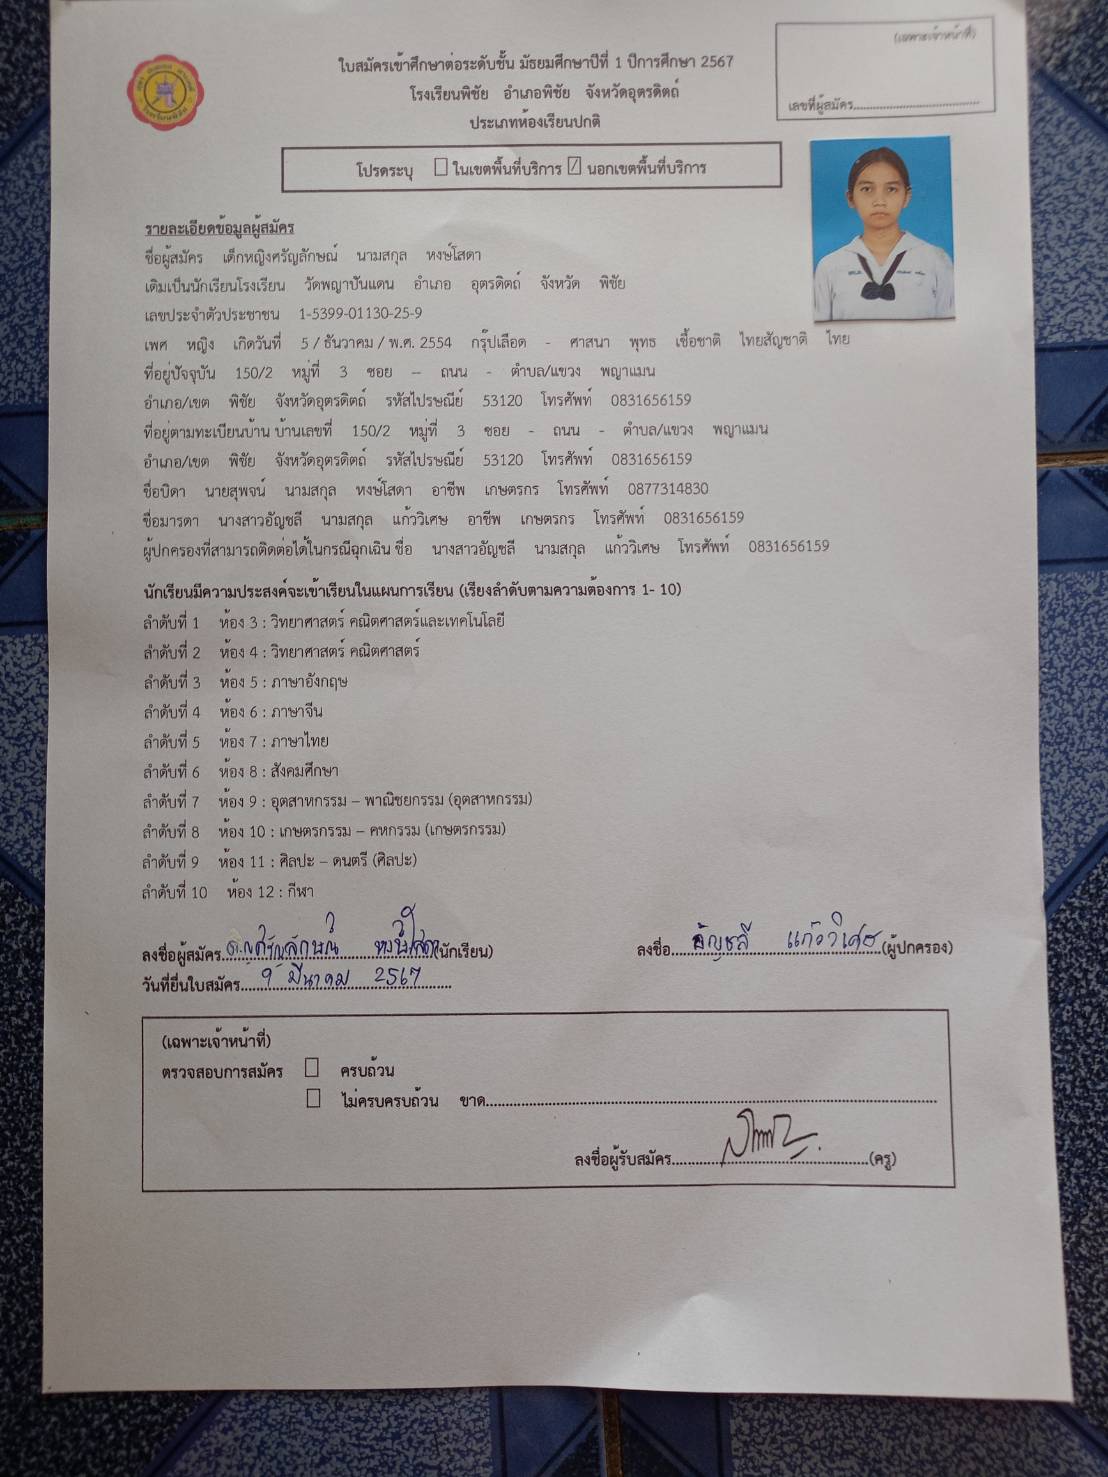 (เฉพาะเจ้าหน้าที่)
เลขที่ผู้สมัคร
ใบสมัครเข้าศึกษาต่อระดับชั้น มัธยมศึกษาปีที่ 1 ปีการศึกษา 2567
โรงเรียนพิชัย อำเภอพิชัย จังหวัดอุตรดิตถ์
ประเภทห้องเรียนปกติ
โปรดระบุ ☐ ในเขตพื้นที่บริการ ☑ นอกเขตพื้นที่บริการ
รายละเอียดข้อมูลผู้สมัคร
ชื่อผู้สมัคร เด็กหญิงศรัญลักษณ์ นามสกุล หงษ์โสดา
เดิมเป็นนักเรียนโรงเรียน วัดพญาปันแดน อำเภอ อุตรดิตถ์ จังหวัด พิชัย
เลขประจำตัวประชาชน 1-5399-01130-25-9
เพศ หญิง เกิดวันที่ 5 / ธันวาคม / พ.ศ. 2554 กรุ๊ปเลือด - ศาสนา พุทธ เชื้อชาติ ไทยสัญชาติ ไทย
ที่อยู่ปัจจุบัน 150/2 หมู่ที่ 3 ซอย – ถนน - ตำบล/แขวง พญาแมน
อำเภอ/เขต พิชัย จังหวัดอุตรดิตถ์ รหัสไปรษณีย์ 53120 โทรศัพท์ 0831656159
ที่อยู่ตามทะเบียนบ้าน บ้านเลขที่ 150/2 หมู่ที่ 3 ซอย - ถนน - ตำบล/แขวง พญาแมน
อำเภอ/เขต พิชัย จังหวัดอุตรดิตถ์ รหัสไปรษณีย์ 53120 โทรศัพท์ 0831656159
ชื่อบิดา นายสุพจน์ นามสกุล หงษ์โสดา อาชีพ เกษตรกร โทรศัพท์ 0877314830
ชื่อมารดา นางสาวอัญชลี นามสกุล แก้ววิเศษ อาชีพ เกษตรกร โทรศัพท์ 0831656159
ผู้ปกครองที่สามารถติดต่อได้ในกรณีฉุกเฉิน ชื่อ นางสาวอัญชลี นามสกุล แก้ววิเศษ โทรศัพท์ 0831656159
นักเรียนมีความประสงค์จะเข้าเรียนในแผนการเรียน (เรียงลำดับตามความต้องการ 1- 10)
ลำดับที่ 1 ห้อง 3 : วิทยาศาสตร์ คณิตศาสตร์และเทคโนโลยี
ลำดับที่ 2 ห้อง 4 : วิทยาศาสตร์ คณิตศาสตร์
ลำดับที่ 3 ห้อง 5 : ภาษาอังกฤษ
ลำดับที่ 4 ห้อง 6 : ภาษาจีน
ลำดับที่ 5 ห้อง 7 : ภาษาไทย
ลำดับที่ 6 ห้อง 8 : สังคมศึกษา
ลำดับที่ 7 ห้อง 9 : อุตสาหกรรม – พาณิชยกรรม (อุตสาหกรรม)
ลำดับที่ 8 ห้อง 10 : เกษตรกรรม – คหกรรม (เกษตรกรรม)
ลำดับที่ 9 ห้อง 11 : ศิลปะ – ดนตรี (ศิลปะ)
ลำดับที่ 10 ห้อง 12 : กีฬา
ลงชื่อผู้สมัคร ด.ญศรัญลักษณ์ หงษ์โสดา (นักเรียน) ลงชื่อ อัญชลี แก้ววิเศษ (ผู้ปกครอง)
วันที่ยื่นใบสมัคร 9 มีนาคม 2567
(เฉพาะเจ้าหน้าที่)
ตรวจสอบการสมัคร ☐ ครบถ้วน
☐ ไม่ครบครบถ้วน ขาด
ลงชื่อผู้รับสมัคร (ครู)